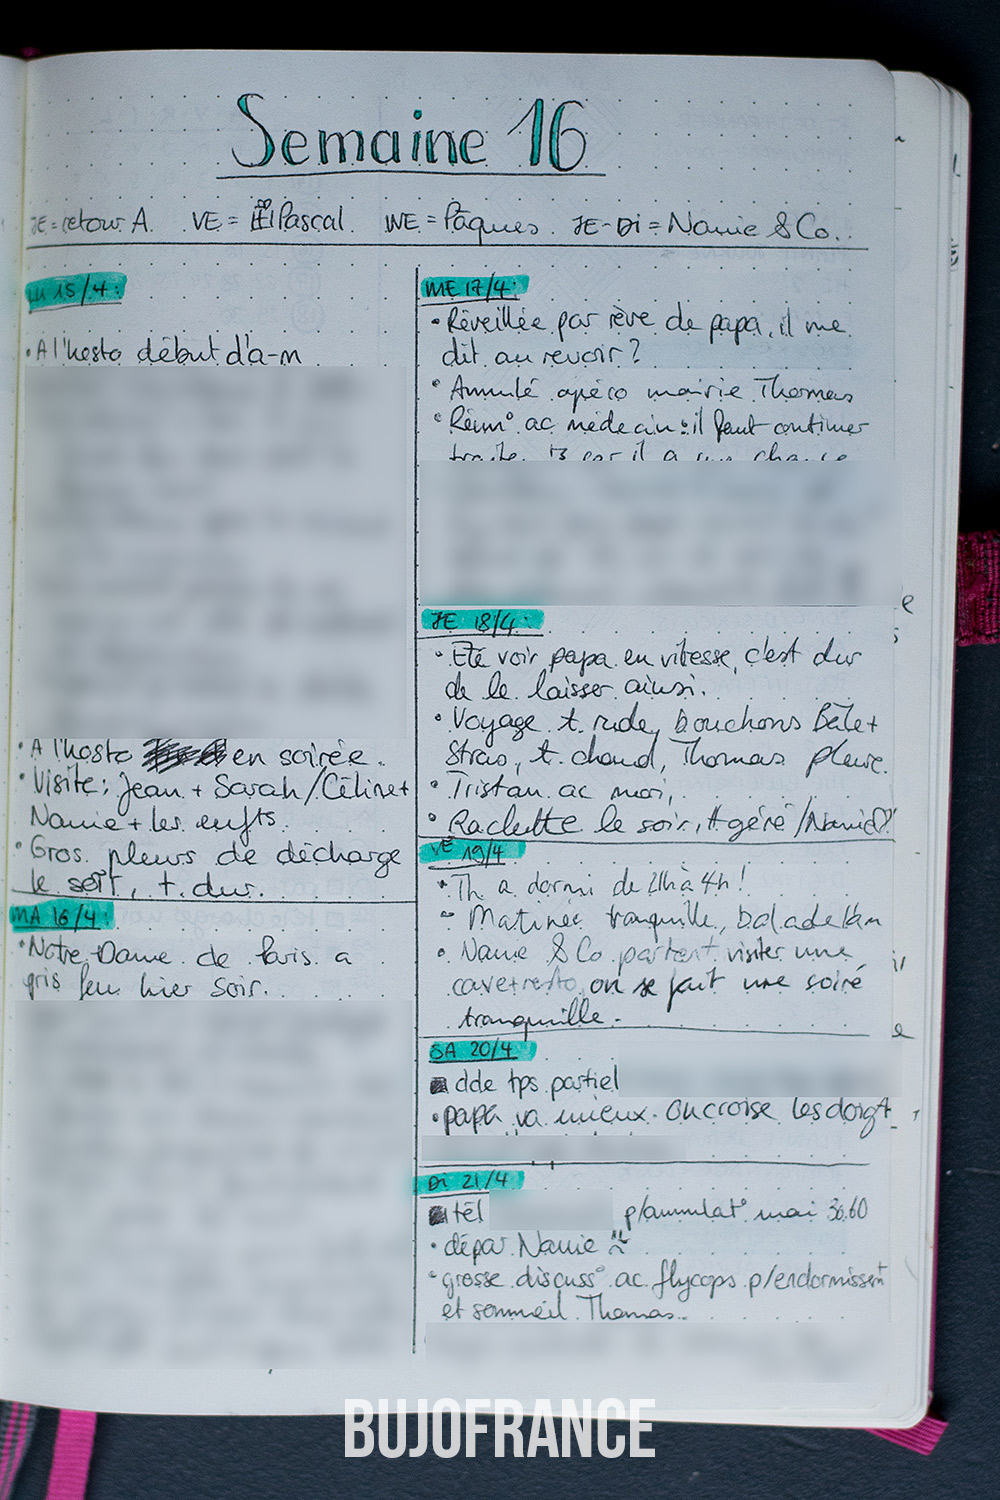 Semaine 16
JE = retour A. VE = Pascal WE = Pâques. JE-Di = Nanie & Co.
LU 15/4:
• A l'hosto début d'a-m
• A l'hosto en soirée.
• Visite: Jean + Sarah/Céline+
Nanie + les enfts.
• Gros pleurs de décharge
le soir, t. dur.
MA 16/4:
• Notre-Dame de Paris a
pris feu hier soir.
ME 17/4:
• Réveillée par rêve de papa, il me
dit au revoir?
• Annulé apéro mairie Thomas
• Réun° ac médecin: il faut continuer
car il a une chance
JE 18/4:
• Eté voir papa en vitesse, c'est dur
de le laisser ainsi.
• Voyage t. rude, bouchons Bâle+
Stras, t. chaud, Thomas pleure.
• Tristan ac moi,
• Raclette le soir, géré /Nanie
VE 19/4
• Th a dormi de 21h à 4h!
• Matinée tranquille, balade
• Nanie & Co partent visiter une
cave+resto, on se fait une soiré
tranquille.
SA 20/4
dde tps partiel
• papa va mieux. On croise les doigt
Di 21/4
tél p/annulat° mai 30.60
• dépar Nanie
• grosse discuss° ac flycops p/endormissemt
et sommeil Thomas.
BUJOFRANCE